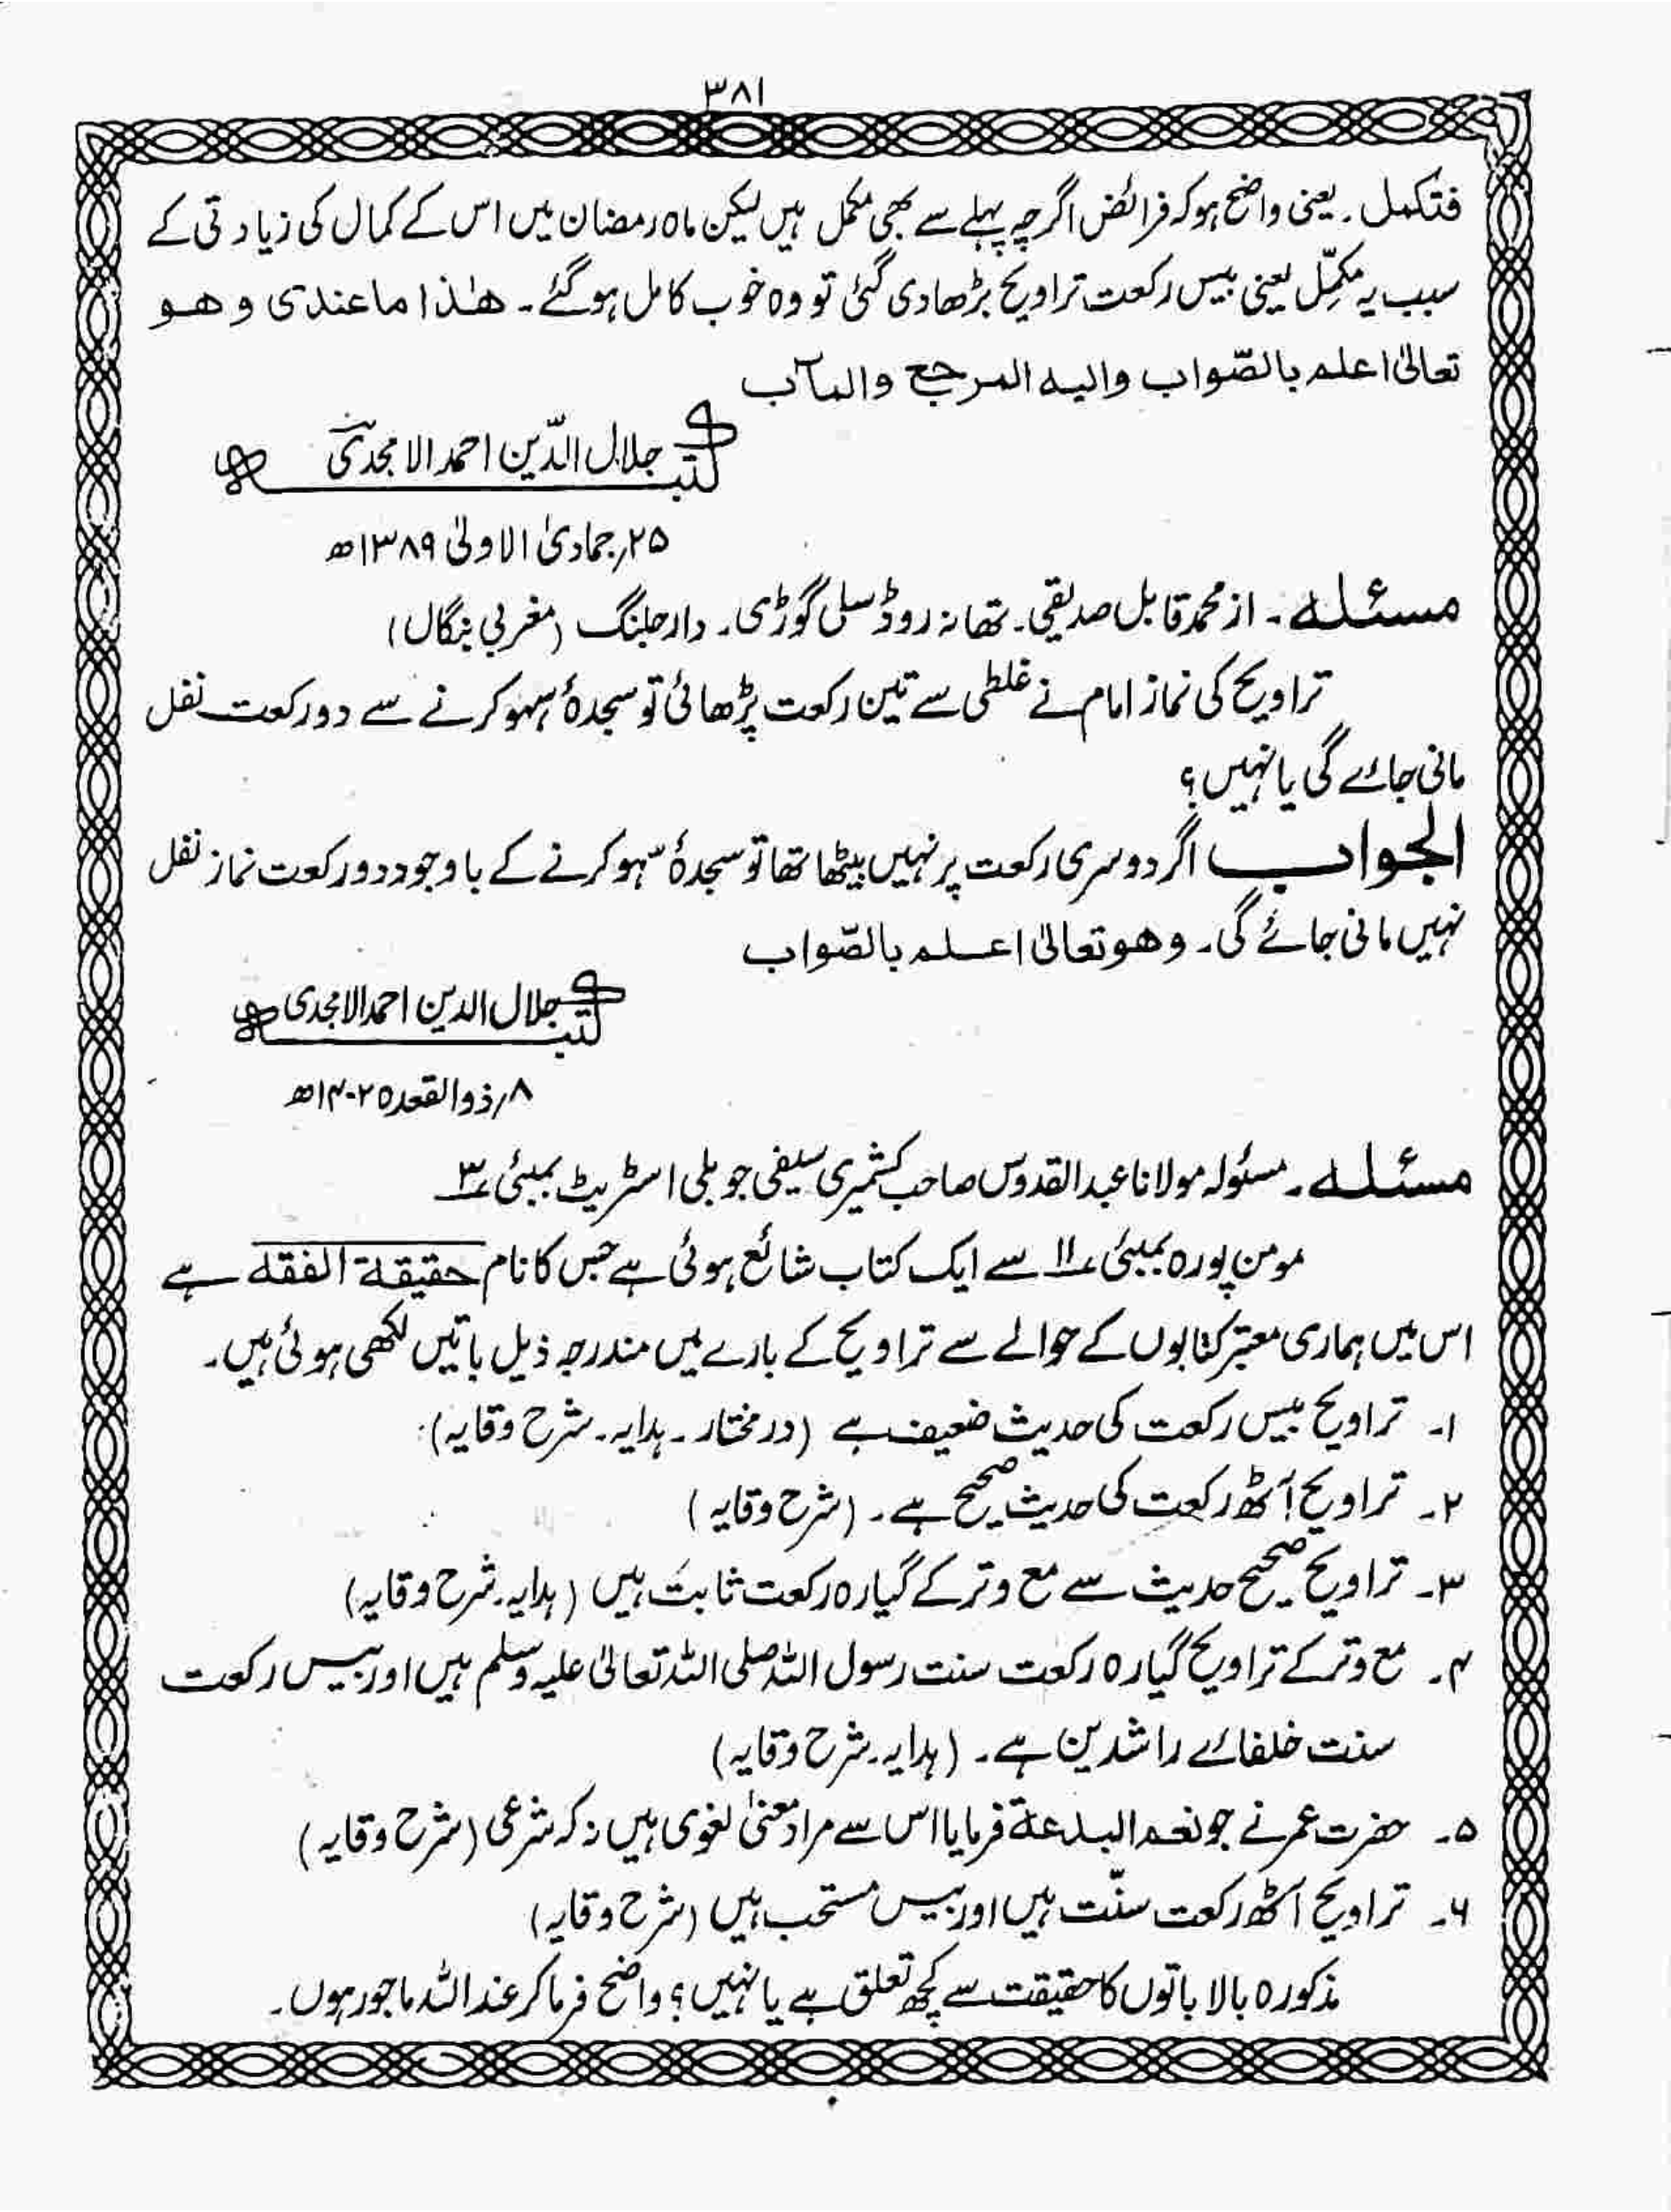 ۳۸۱
فتكمل ۔ یعنی واضح ہو کہ فرائض اگرچہ پہلے سے بھی مکمل ہیں لیکن ماہ رمضان میں اس کے کمال کی زیادتی کے
سبب یہ مکمِّل یعنی بیس رکعت تراویح بڑھا دی گئی تو وہ خوب کامل ہو گئے۔ ھٰذا ما عندی وھو
تعالیٰ اعلم بالصّواب والیہ المرجع والمآب
کتبہ جلال الدّین احمد الامجدی
۲۵؍جمادی الاولیٰ ۱۳۸۹ھ
مسئلہ ۔ از محمد قابل صدیقی۔ تھانہ روڈ سلی گوڑی۔ دارجلنگ (مغربی بنگال)
تراویح کی نماز امام نے غلطی سے تین رکعت پڑھائی تو سجدۂ سہو کرنے سے دو رکعت نفل
مانی جائے گی یا نہیں؟
الجواب اگر دوسری رکعت پر نہیں بیٹھا تھا تو سجدۂ سہو کرنے کے باوجود دو رکعت نماز نفل
نہیں مانی جائے گی۔ وھو تعالیٰ اعلم بالصّواب
کتبہ جلال الدین احمد الامجدی
۸؍ذوالقعدہ ۱۴۰۲ھ
مسئلہ ۔ مسئولہ مولانا عبدالقدوس صاحب کشمیری سیفی جوبلی اسٹریٹ بمبئی ۳
مومن پورہ بمبئی ۱۱ سے ایک کتاب شائع ہوئی ہے جس کا نام حقیقۃ الفقہ ہے
اس میں ہماری معتبر کتابوں کے حوالے سے تراویح کے بارے میں مندرجہ ذیل باتیں لکھی ہوئی ہیں۔
۱۔ تراویح بیس رکعت کی حدیث ضعیف ہے (درمختار ۔ ہدایہ ۔ شرح وقایہ)
۲۔ تراویح آٹھ رکعت کی حدیث صحیح ہے۔ (شرح وقایہ)
۳۔ تراویح صحیح حدیث سے مع وتر کے گیارہ رکعت ثابت ہیں (ہدایہ۔ شرح وقایہ)
۴۔ مع وتر کے تراویح گیارہ رکعت سنت رسول اللہ صلی اللہ تعالیٰ علیہ وسلم ہیں اور بیس رکعت
سنت خلفائے راشدین ہے۔ (ہدایہ۔ شرح وقایہ)
۵۔ حضرت عمر نے جو نعم البدعة فرمایا اس سے مراد معنیٰ لغوی ہیں نہ کہ شرعی (شرح وقایہ)
۶۔ تراویح آٹھ رکعت سنّت ہیں اور بیس مستحب ہیں (شرح وقایہ)
مذکورہ بالا باتوں کا حقیقت سے کچھ تعلق ہے یا نہیں؟ واضح فرما کر عنداللہ ماجور ہوں۔